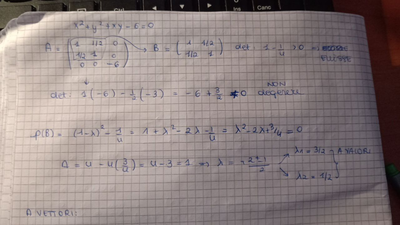 x² + y² + xy - 6 = 0
A = (1 1/2 0 / 1/2 1 0 / 0 0 -6) → B = (1 1/2 / 1/2 1) det: 1 - 1/4 > 0 ⇒
det: 1(-6) - 1/2(-3) = -6 + 3/2 ≠ 0 NON degenere
p(B) = (1-λ)² - 1/4 = 1 + λ² - 2λ - 1/4 = λ² - 2λ + 3/4 = 0
Δ = 4 - 4(3/4) = 4 - 3 = 1 ⇒ λ = +2±1/2 λ1 = 3/2 λ2 = 1/2 AVALORI
AVETTORI: